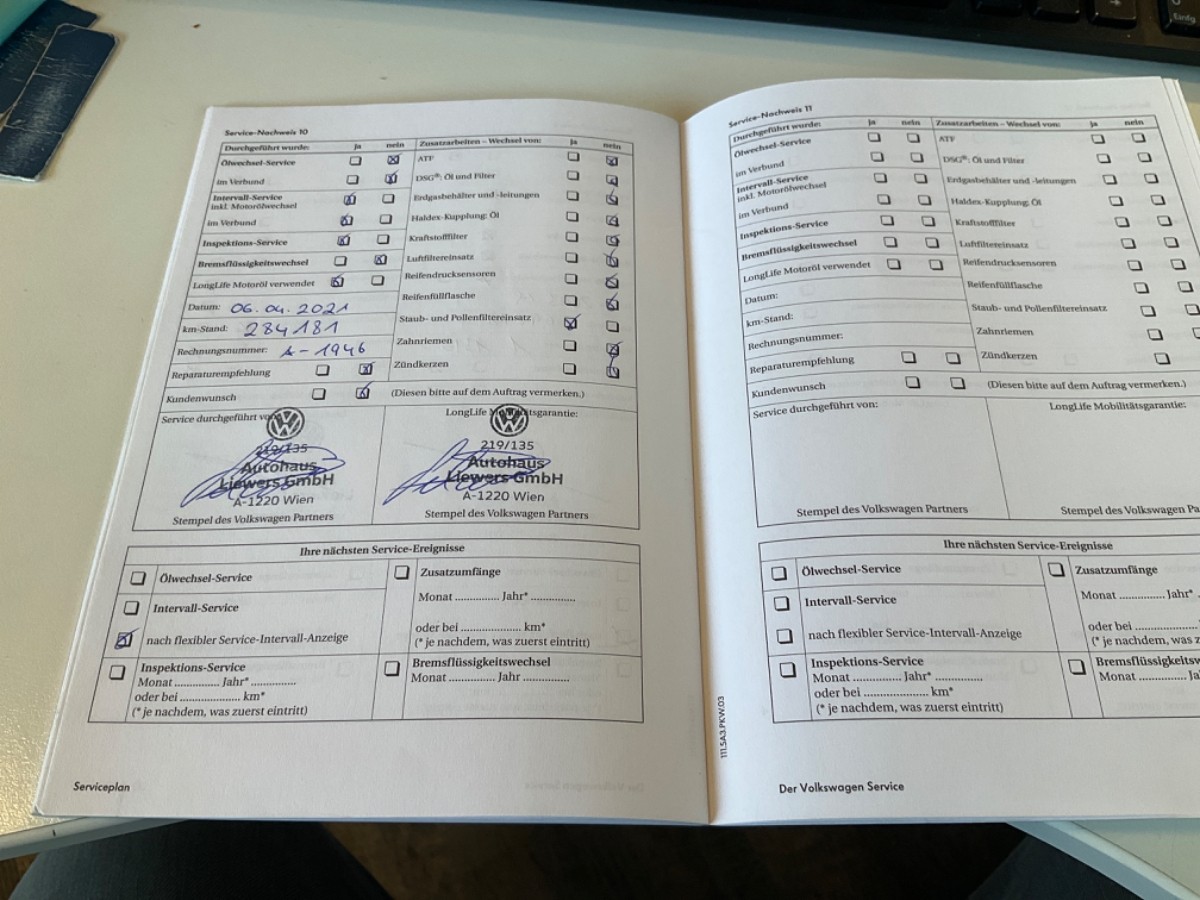 Einfg
Service-Nachweis 10
Durchgeführt wurde: ja nein
Zusatzarbeiten – Wechsel von: ja nein
Ölwechsel-Service
im Verbund
Intervall-Service
inkl. Motorölwechsel
im Verbund
Inspektions-Service
Bremsflüssigkeitswechsel
LongLife Motoröl verwendet
Datum: 06.04.2021
km-Stand: 284181
Rechnungsnummer: A-1946
Reparaturempfehlung
Kundenwunsch
ATF
DSG®: Öl und Filter
Erdgasbehälter und -leitungen
Haldex-Kupplung: Öl
Kraftstofffilter
Luftfiltereinsatz
Reifendrucksensoren
Reifenfüllflasche
Staub- und Pollenfiltereinsatz
Zahnriemen
Zündkerzen
(Diesen bitte auf dem Auftrag vermerken.)
Service durchgeführt von:
219/135
Autohaus
Liewers GmbH
A-1220 Wien
Stempel des Volkswagen Partners
LongLife Mobilitätsgarantie:
219/135
Autohaus
Liewers GmbH
A-1220 Wien
Stempel des Volkswagen Partners
Ihre nächsten Service-Ereignisse
Ölwechsel-Service
Intervall-Service
nach flexibler Service-Intervall-Anzeige
Inspektions-Service
Monat .............. Jahr* ..............
oder bei .................... km*
(* je nachdem, was zuerst eintritt)
Zusatzumfänge
Monat .............. Jahr* ..............
oder bei .................... km*
(* je nachdem, was zuerst eintritt)
Bremsflüssigkeitswechsel
Monat .............. Jahr ..............
Serviceplan
Service-Nachweis 11
Durchgeführt wurde: ja nein
Zusatzarbeiten – Wechsel von: ja nein
Ölwechsel-Service
im Verbund
Intervall-Service
inkl. Motorölwechsel
im Verbund
Inspektions-Service
Bremsflüssigkeitswechsel
LongLife Motoröl verwendet
Datum:
km-Stand:
Rechnungsnummer:
Reparaturempfehlung
Kundenwunsch
ATF
DSG®: Öl und Filter
Erdgasbehälter und -leitungen
Haldex-Kupplung: Öl
Kraftstofffilter
Luftfiltereinsatz
Reifendrucksensoren
Reifenfüllflasche
Staub- und Pollenfiltereinsatz
Zahnriemen
Zündkerzen
(Diesen bitte auf dem Auftrag vermerken.)
Service durchgeführt von:
Stempel des Volkswagen Partners
LongLife Mobilitätsgarantie:
Stempel des Volkswagen Pa
Ihre nächsten Service-Ereignisse
Ölwechsel-Service
Intervall-Service
nach flexibler Service-Intervall-Anzeige
Inspektions-Service
Monat .............. Jahr* ..............
oder bei .................... km*
(* je nachdem, was zuerst eintritt)
Zusatzumfänge
Monat .............. Jahr*
oder bei ....................
(* je nachdem, was z
Bremsflüssigk
Monat .............. Ja
111.5A3.PKW.03
Der Volkswagen Service